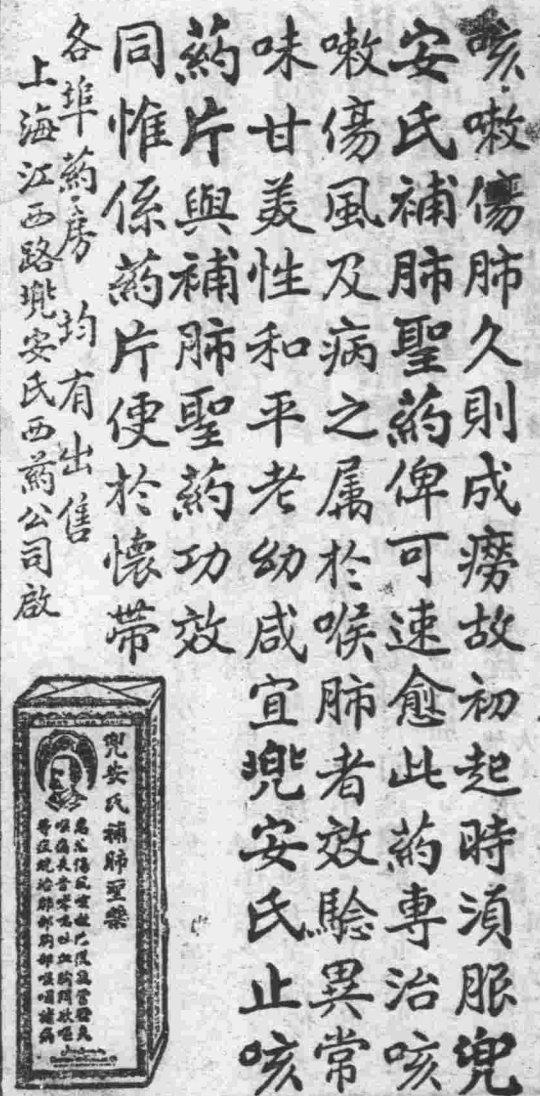 咳嗽傷肺久則成癆故初起時須服兜
安氏補肺聖葯俾可速愈此葯專治咳
嗽傷風及病之属於喉肺者效騐異常
味甘美性和平老幼咸宜兠安氏止咳
葯片與補肺聖葯功效
同惟係葯片便於懷帶
各埠葯房均有出售
上海江西路兠安氏西葯公司啟
兜安氏補肺聖藥